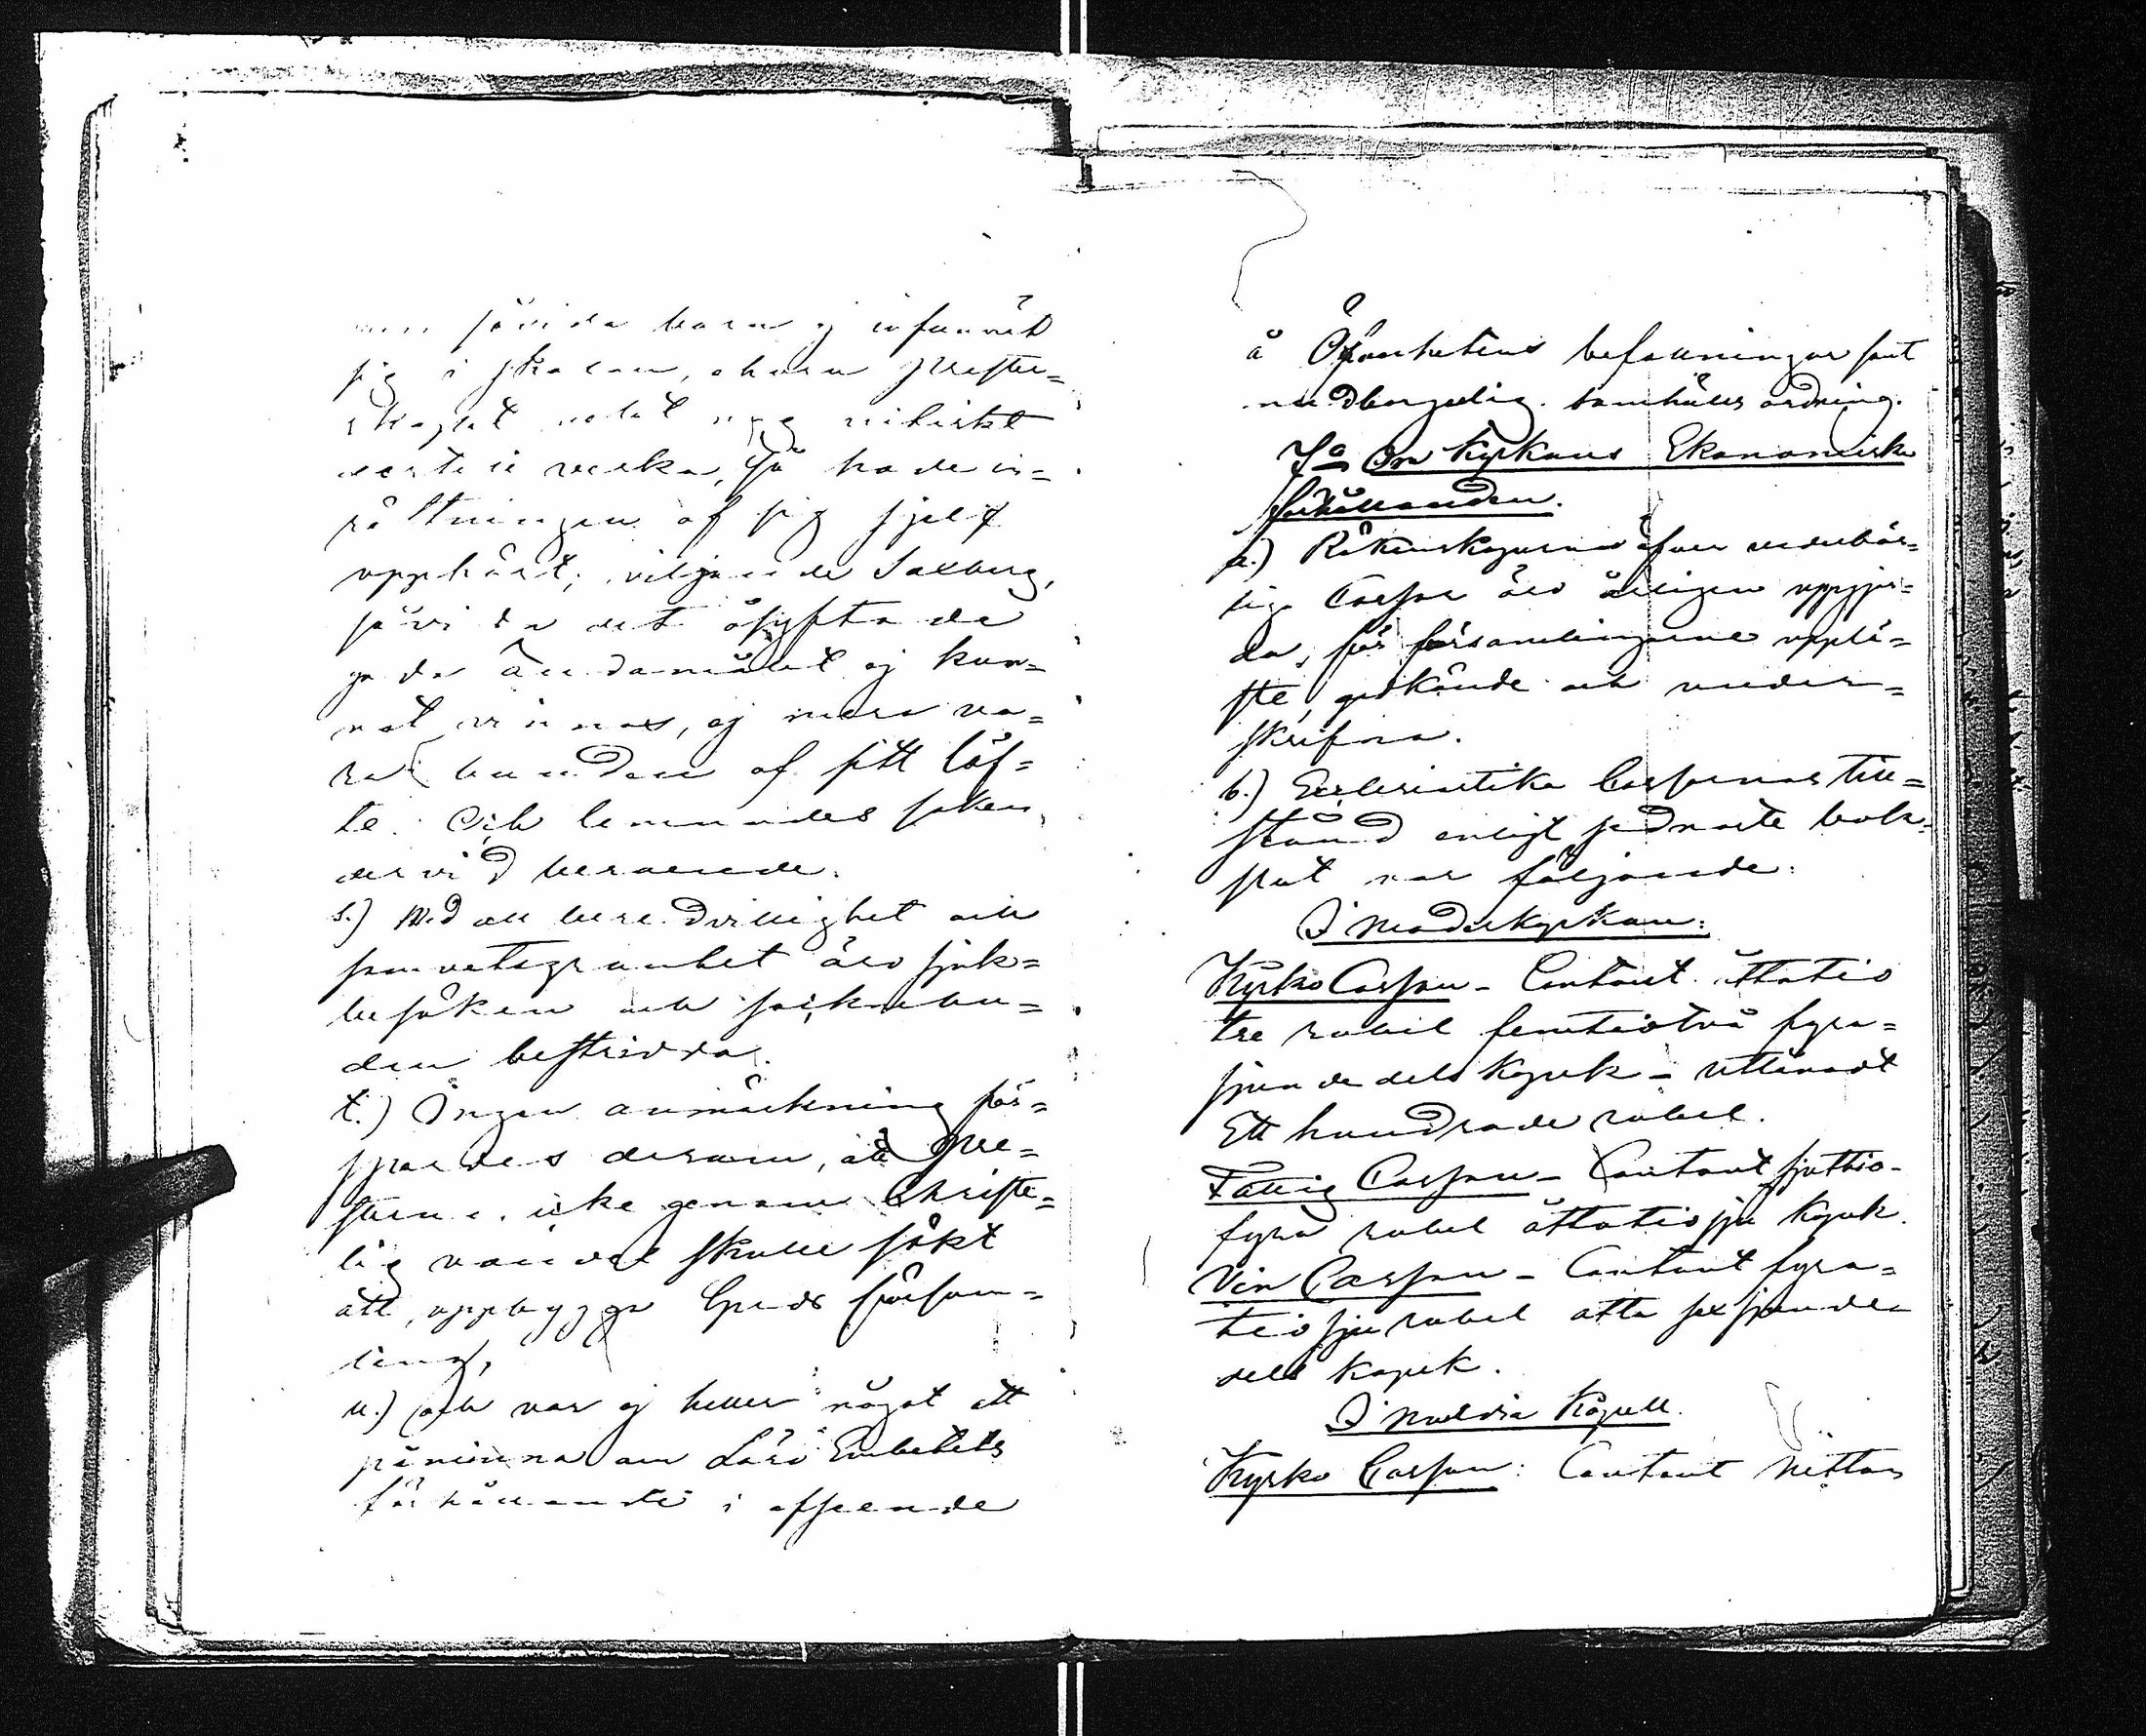 såvida barn ej infunnit
sig i skolan, ehuru prester=
skapet
verka, så hade in=
rättningen af sig sjelf
upphört; viljande Saxberg,
såvida det åsyftade
goda ändamålet ej kun=
nat vinnas, ej mera va=
ra bunden af sitt löf=
te. Och lemnades saken
dervid beroende.
s.) Med all beredvillighet och
samvetsgranhet äro sjuk=
besöken och sockenbu=
den bestridda.
t.) Ingen anmärkning för=
spordes derom, att Pre=
sterne icke genom Christe=
lig vandel skulle sökt
att uppbygga Guds försam=
ling,
u.) och var ej heller något att
påminna om Läro Embetets
förhållande i afseende
å Öfverhetens befallningar samt
medborgerlig samhälls ordning.
7o Om Kyrkans Ekonomiska
förhållanden.
a.) Räkenskaperna öfver vederbör=
liga Cassor äro årligen uppgjor=
da, för församlingarne upplä=
ste, godkände och under=
skrifna.
b.) Ecclesiastika Cassornas till=
stånd enligt sednaste bok=
slut var följande:
I Moderkyrkan:
Kyrko Cassan - Contant åttatio
tre rubel femtiotvå fyra=
sjundedels kopek - utlånadt
Ett hundrade rubel.
Fattig Cassan - Contant sjuttio-
fyra rubel åttatiosju kopek.
Vin Cassan - Contant fyra=
tiosju rubel åtta sex sjunde
dels kopek.
I Muldia Kapell.
Kyrko Cassan: Contant Nitton